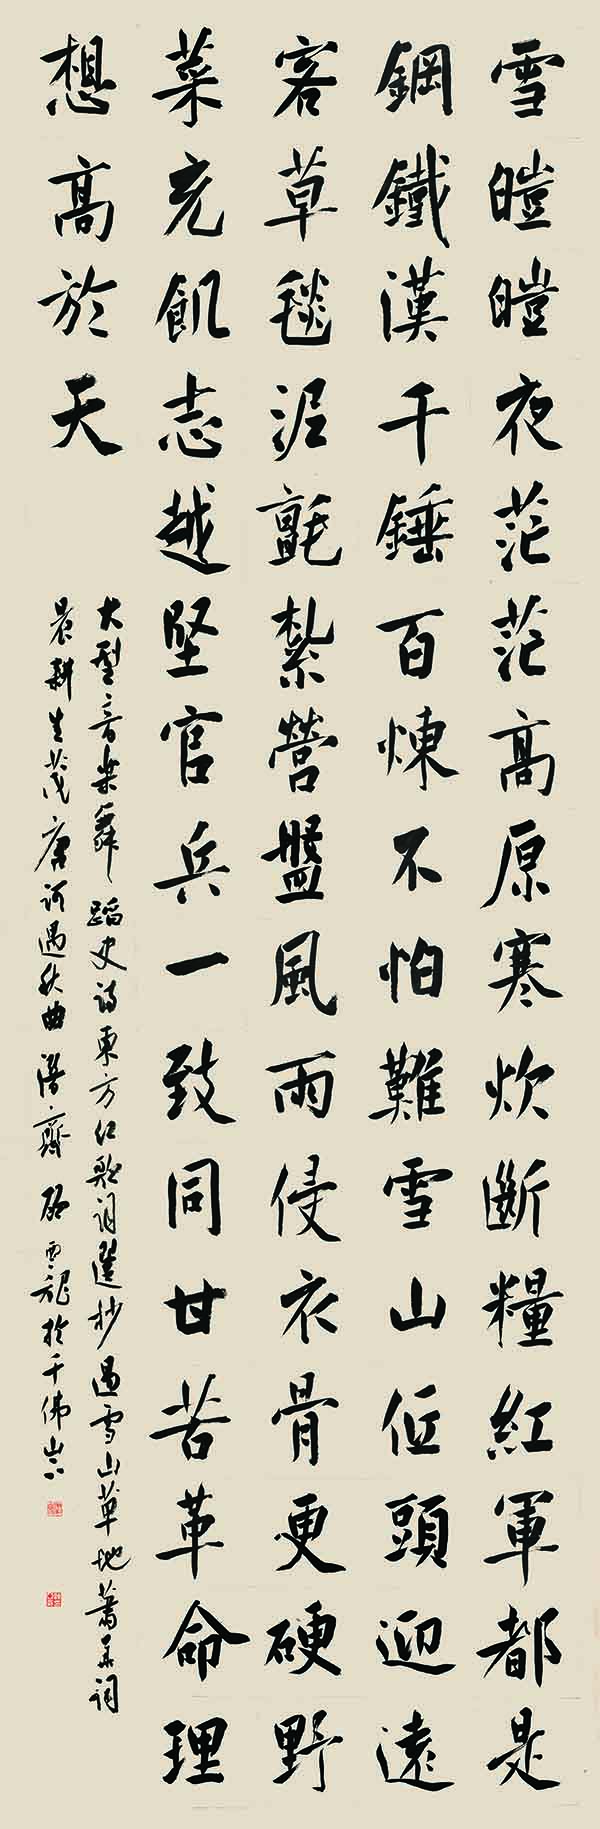 雪皚皚夜茫茫高原寒炊斷糧紅軍都是
鋼鐵漢千錘百煉不怕難雪山低頭迎遠
客草毯泥氈紮營盤風雨侵衣骨更硬野
菜充飢志越堅官兵一致同甘苦革命理
想高於天
大型音樂舞蹈史詩東方紅歌詞選抄過雪山草地蕭華詞
晨耕生茂唐訶遇秋曲 齋 雲龍於千佛山下